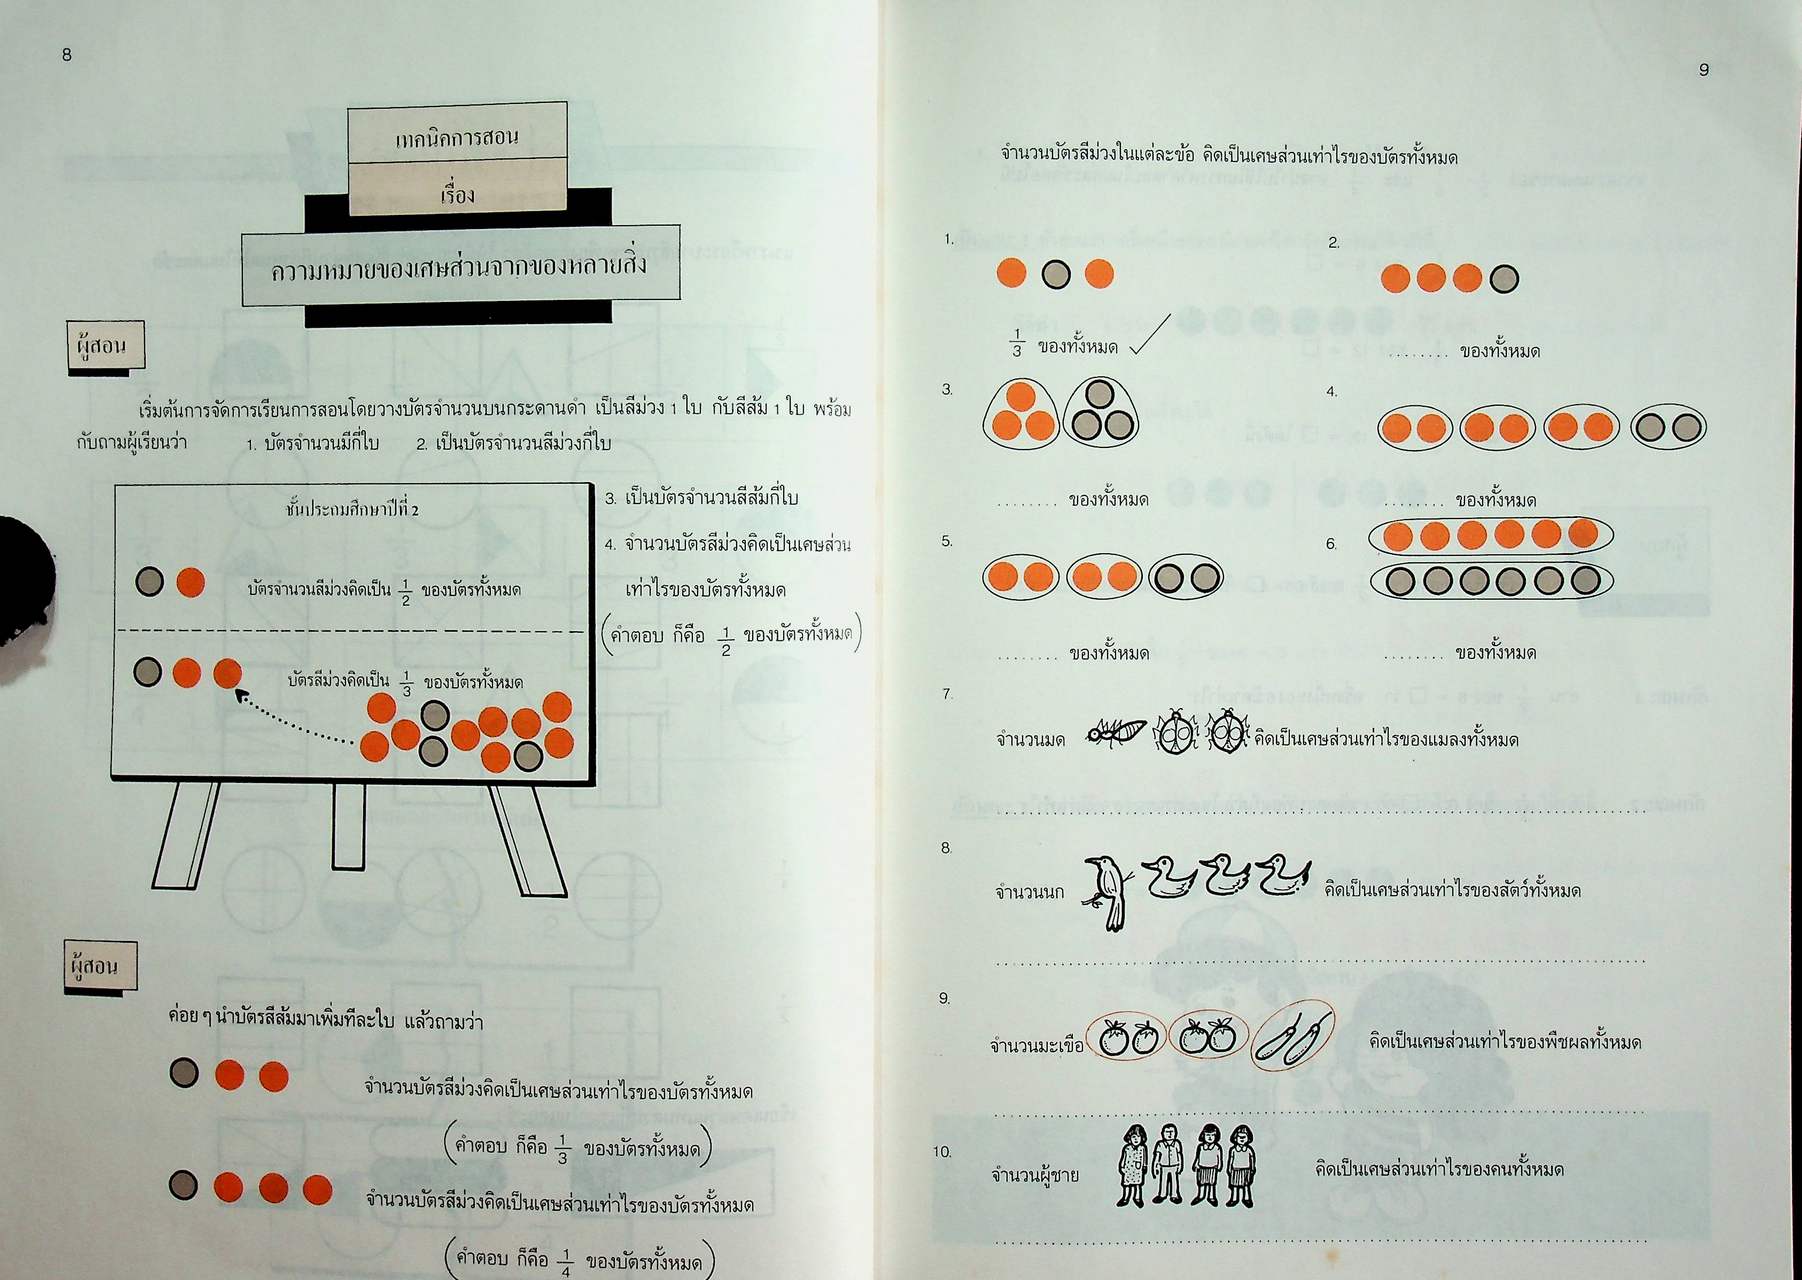 8
เทคนิคการสอน
เรื่อง
ความหมายของเศษส่วนจากของหลายสิ่ง
ผู้สอน
เริ่มต้นการจัดการเรียนการสอนโดยวางบัตรจำนวนบนกระดานดำ เป็นสีม่วง 1 ใบ กับสีส้ม 1 ใบ พร้อม
กับถามผู้เรียนว่า 1. บัตรจำนวนมีกี่ใบ 2. เป็นบัตรจำนวนสีม่วงกี่ใบ
3. เป็นบัตรจำนวนสีส้มกี่ใบ
4. จำนวนบัตรสีม่วงคิดเป็นเศษส่วน
เท่าไรของบัตรทั้งหมด
(คำตอบ ก็คือ 1/2 ของบัตรทั้งหมด)
ชั้นประถมศึกษาปีที่ 2
บัตรจำนวนสีม่วงคิดเป็น 1/2 ของบัตรทั้งหมด
บัตรสีม่วงคิดเป็น 1/3 ของบัตรทั้งหมด
ผู้สอน
ค่อย ๆ นำบัตรสีส้มมาเพิ่มทีละใบ แล้วถามว่า
จำนวนบัตรสีม่วงคิดเป็นเศษส่วนเท่าไรของบัตรทั้งหมด
(คำตอบ ก็คือ 1/3 ของบัตรทั้งหมด)
จำนวนบัตรสีม่วงคิดเป็นเศษส่วนเท่าไรของบัตรทั้งหมด
(คำตอบ ก็คือ 1/4 ของบัตรทั้งหมด)
9
จำนวนบัตรสีม่วงในแต่ละข้อ คิดเป็นเศษส่วนเท่าไรของบัตรทั้งหมด
1.
1/3 ของทั้งหมด ✓
2.
........ ของทั้งหมด
3.
........ ของทั้งหมด
4.
........ ของทั้งหมด
5.
........ ของทั้งหมด
6.
........ ของทั้งหมด
7.
จำนวนมด คิดเป็นเศษส่วนเท่าไรของแมลงทั้งหมด
8.
จำนวนนก คิดเป็นเศษส่วนเท่าไรของสัตว์ทั้งหมด
9.
จำนวนมะเขือ คิดเป็นเศษส่วนเท่าไรของพืชผลทั้งหมด
10.
จำนวนผู้ชาย คิดเป็นเศษส่วนเท่าไรของคนทั้งหมด